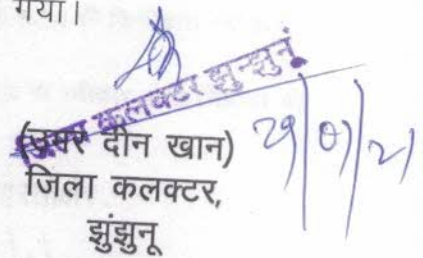 गया।
जिला कलक्टर झुन्झुनूं
(उमर दीन खान)
जिला कलक्टर,
झुंझुनू